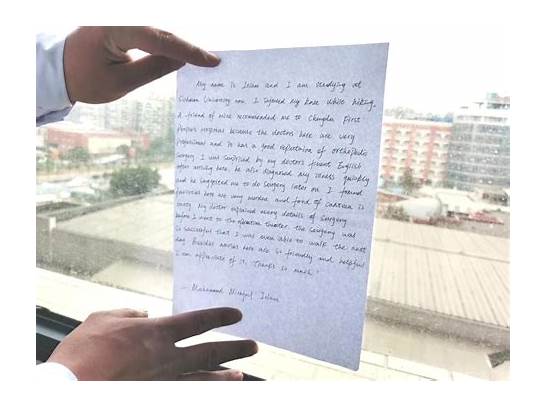 My name is Islam and I am studying at
Sichuan University now. I injured my knee while hiking.
A friend of mine recommended me to Chengdu First
People's Hospital because the doctors here are very
professional and it has a good reputation of orthopedic
surgery. I was surprised by my doctor's fluent English
after arriving here. He also diagnosed my illness quickly
and he suggested me to do surgery later on. I found
facilities here are very modern and food of canteen is
tasty. My doctor explained many details of surgery
before I went to the operation theater. The surgery was
so successful that I was even able to walk the next
day. Besides nurses here are so friendly and helpful
I am appreciate of it. Thanks so much!
- Mohammad Islam